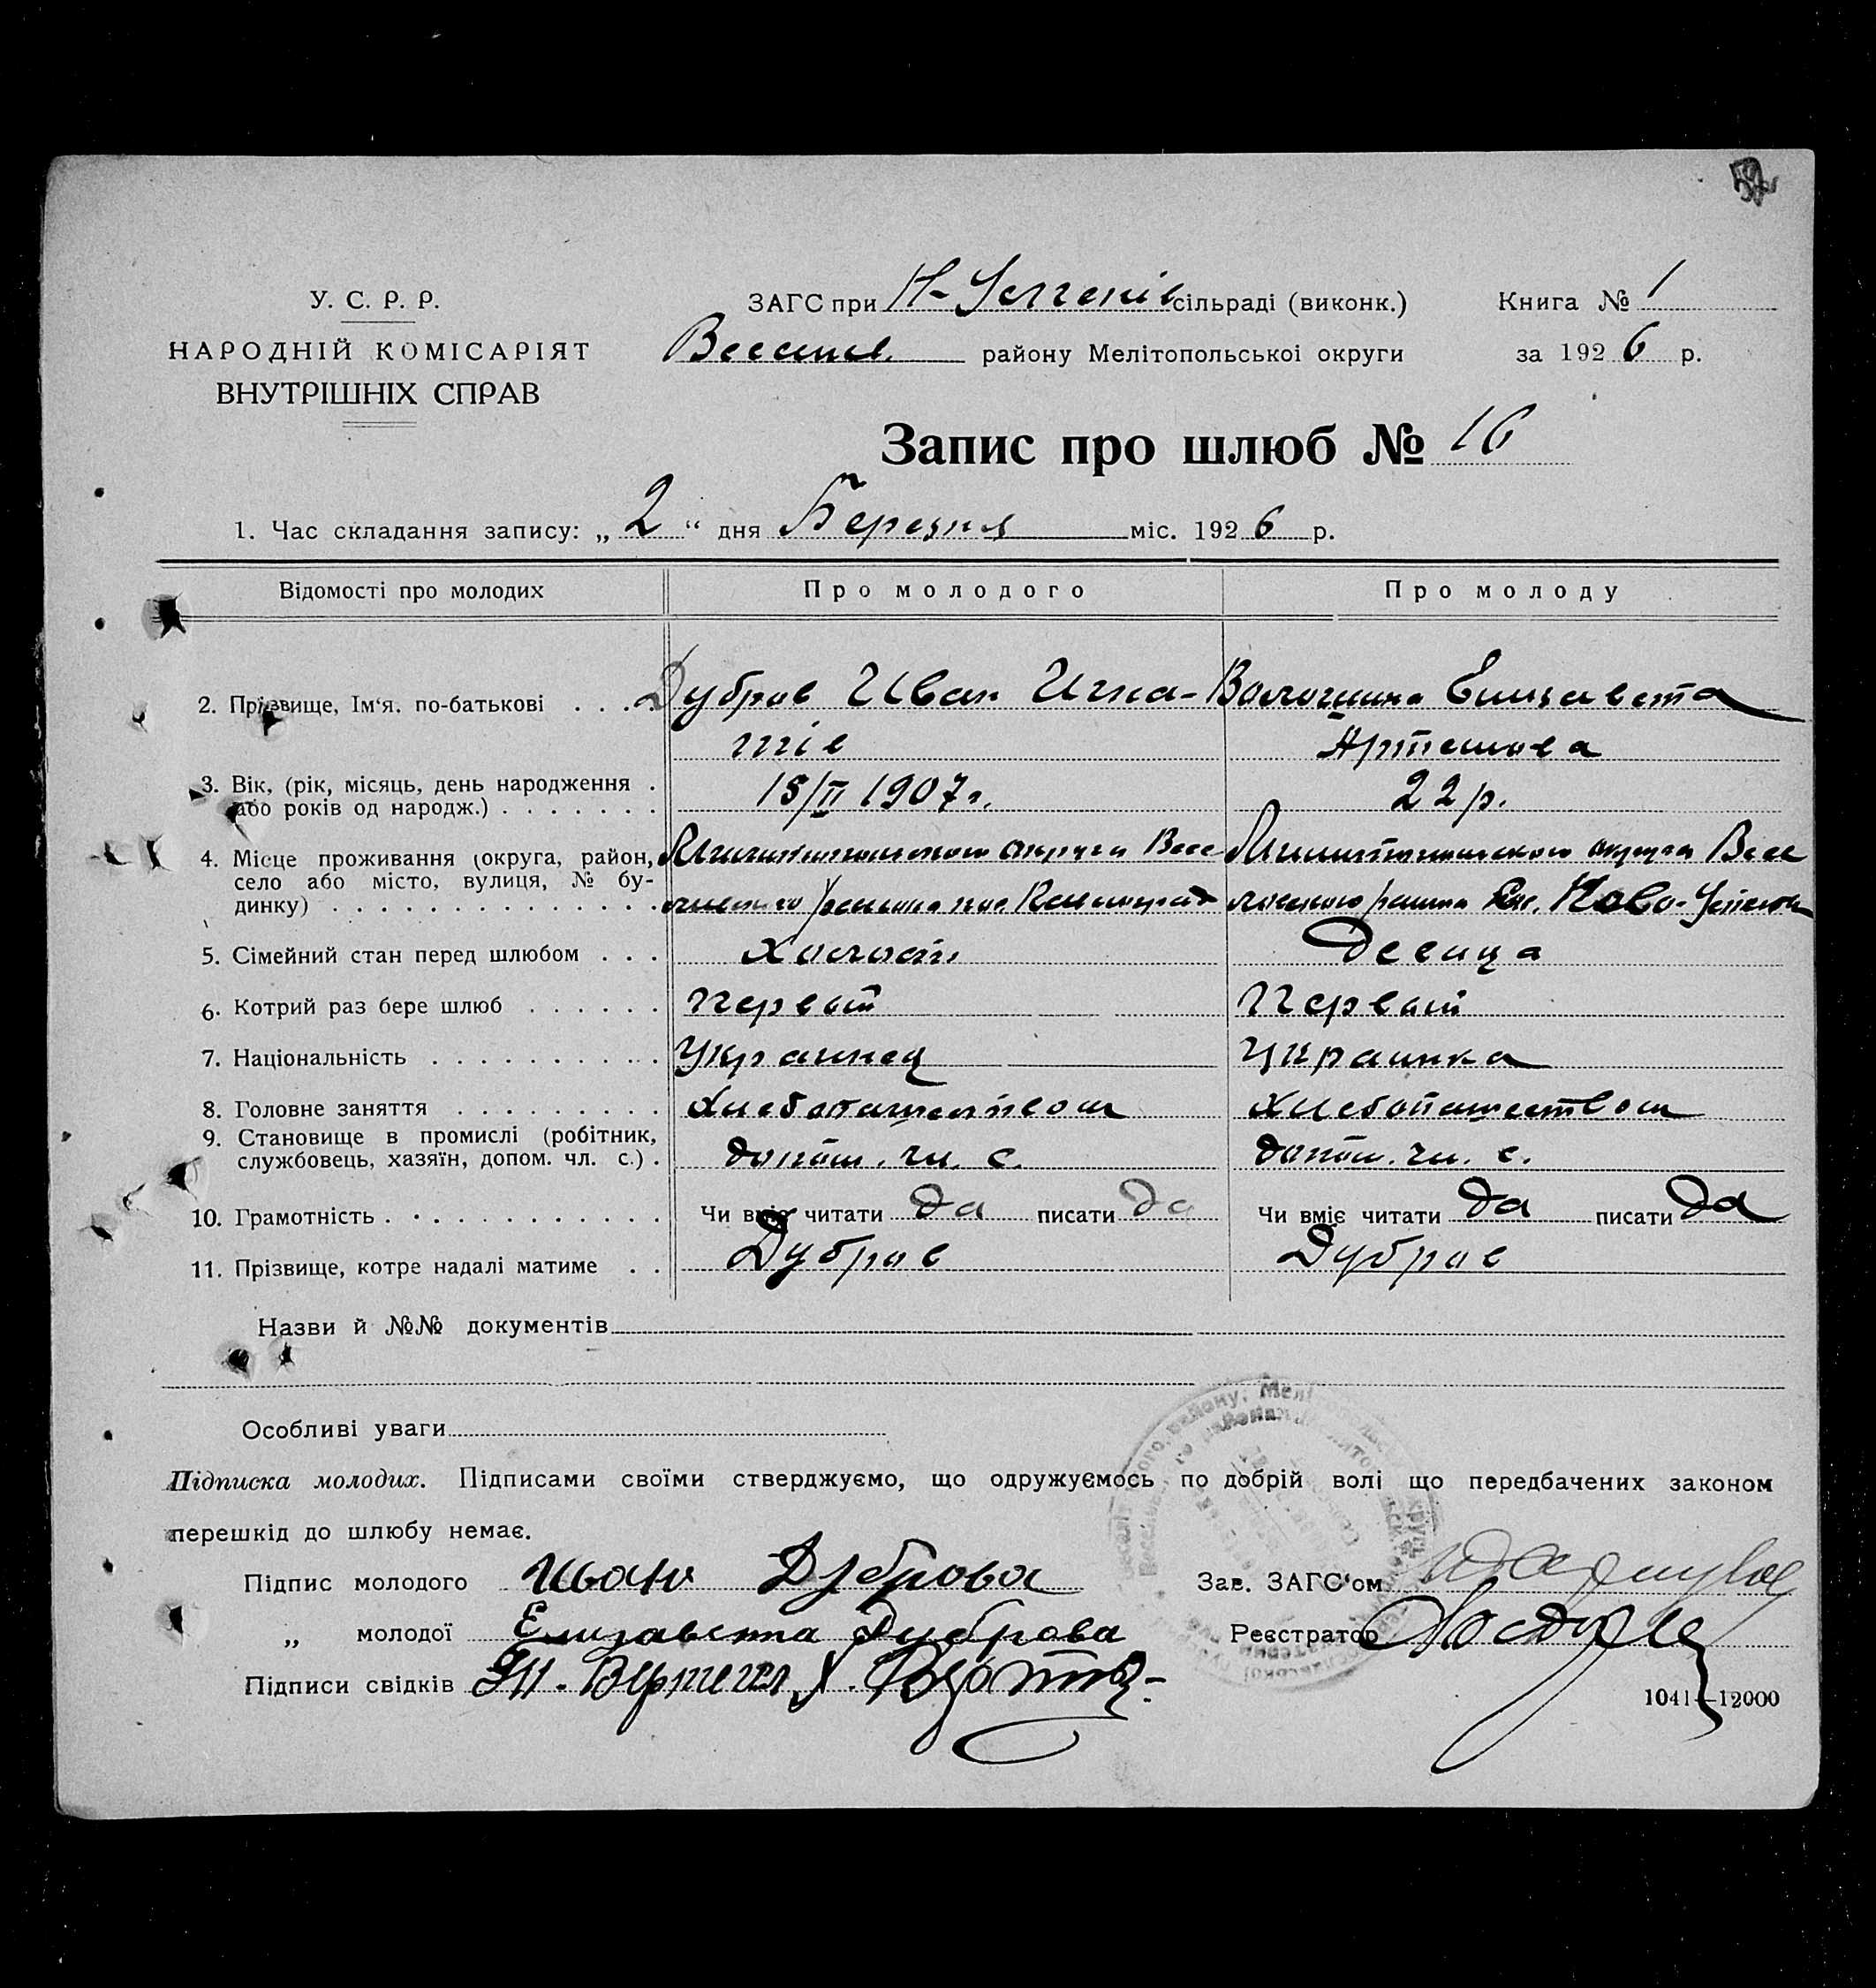 У. С. Р. Р.
НАРОДНІЙ КОМІСАРІЯТ
ВНУТРІШНІХ СПРАВ
ЗАГС при Н- сільраді (виконк.) Книга № 1
району Мелітопольської округи за 1926 р.
Запис про шлюб № 16
1. Час складання запису: „ 2 “ дня Березня міс. 1926 р.
Відомості про молодих Про молодого Про молоду
2. Прізвище, Ім‘я. по-батькові . . . . Дубров Иван Игна- Волошина Елизавета
тів Артемова
3. Вік, (рік, місяць, день народження . 15/II 1907 г. 22 р.
або років од народж.) . . . . . . .
4. Місце проживання (округа, район, округи Весе округа Весе
село або місто, вулиця, № бу- района пос. района Ново-
динку) . . . . . . . . . . . . . .
5. Сімейний стан перед шлюбом . . . Холост Девица
6. Котрий раз бере шлюб . . . . . . Первый Первый
7. Національність . . . . . . . . . . Украинец Украинка
8. Головне заняття . . . . . . . . . Хлебопашеством Хлебопашеством
9. Становище в промислі (робітник, допом. чл. с. допом. чл. с.
службовець, хазяїн, допом. чл. с.) .
10. Грамотність . . . . . . . . . . . . Чи вміє читати да писати да Чи вміє читати да писати да
11. Прізвище, котре надалі матиме . . Дубров Дубров
Назви й №№ документів
Особливі уваги
Підписка молодих. Підписами своїми стверджуємо, що одружуємось по добрій волі що передбачених законом
перешкід до шлюбу немає.
Підпис молодого Иван Дуброва Зав. ЗАГС‘ом
„ молодої Елизавета Дуброва Реєстратор
Підписи свідків
1041—12000